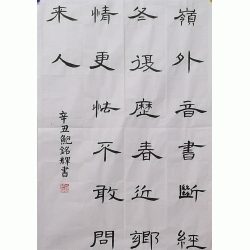 嶺外音書斷經
冬復歷春近鄉
情更怯不敢問
來人
辛丑鮑銘輝書